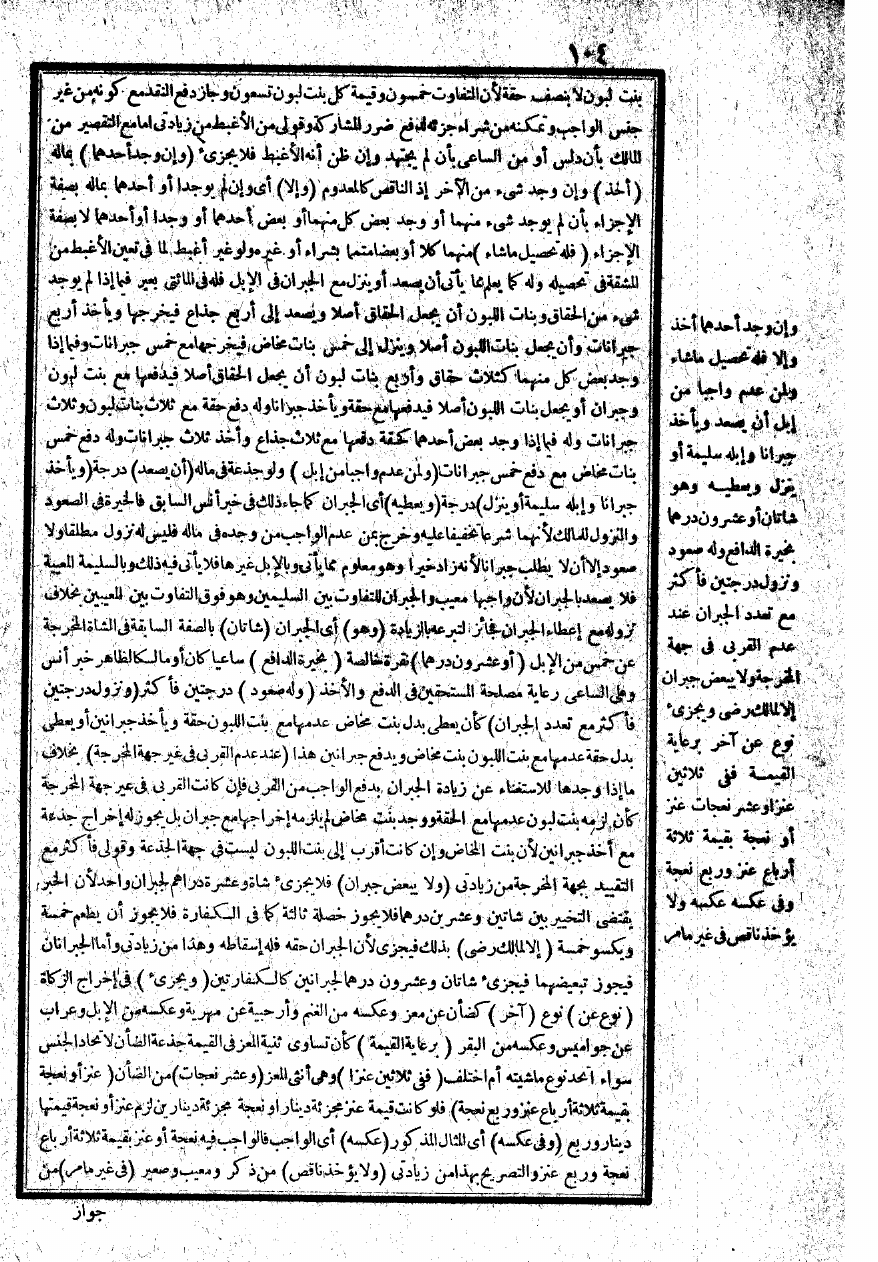 ١٠٤
بنت لبون لا بنصف حقة لأن التفاوت خمسون وقيمة كل بنت لبون تسعون وجاز دفع النقد مع كونه من غير
جنس الواجب وتمكنه من شراء جزئه لدفع ضرر المشاركة وقولى من الأغبط من زيادتى امامع التقصير من
المالك بأن دلس أو من الساعى بأن لم يجتهد وإن ظن أنه الأغبط فلا يجزىء (وإن وجد أحدهما) بماله
(أخذ) وإن وجد شىء من الآخر إذ الناقص كالمعدوم (وإلا) أى وإن لم يوجدا أو أحدهما بماله بصفة
الإجزاء بأن لم يوجد شىء منهما أو وجد بعض كل منهما أو بعض أحدهما أو وجدا أو أحدهما لا بصفة
الإجزاء (فله تحصيل ماشاء) منهما كلا أو بعضا متمما بشراء أو غيره ولو غير أغبط لما فى تعين الأغبط من
المشقة فى تحصيله وله كما يعلم مما يأتى أن يصعد أو ينزل مع الجبران فى الإبل فله فى المائتى بعير فيما إذا لم يوجد
شىء من الحقاق وبنات اللبون أن يجعل الحقاق أصلا ويصعد إلى أربع جذاع فيخرجها ويأخذ أربع
جبرانات وأن يجعل بنات اللبون أصلا وينزل إلى خمس بنات مخاض فيخرجها مع خمس جبرانات وفيما إذا
وجد بعض كل منهما كثلاث حقاق وأربع بنات لبون أن يجعل الحقاق أصلا فيدفعها مع بنت لبون
وجبران أو يجعل بنات اللبون أصلا فيدفعها مع حقة ويأخذ جبرانا وله دفع حقة مع ثلاث بنات لبون وثلاث
جبرانات وله فيما إذا وجد بعض أحدهما كحقة دفعها مع ثلاث جذاع وأخذ ثلاث جبرانات وله دفع خمس
بنات مخاض مع دفع خمس جبرانات (ولمن عدم واجبا من إبل) ولو جذعة فى ماله (أن يصعد) درجة (ويأخذ
جبرانا وإبله سليمة أو ينزل) درجة (ويعطيه) أى الجبران كما جاء ذلك فى خبر أنس السابق فالخيرة فى الصعود
والنزول للمالك لأنهما شرعا تخفيفا عليه وخرج بمن عدم الواجب من وجده فى ماله فليس له نزول مطلقا ولا
صعود إلا أن لا يطلب جبرانا لأنه زاد خيرا وهو معلوم مما يأتى وبالإبل غيرها فلا يأتى فيه ذلك وبالسليمة المعيبة
فلا يصعد بالجبران لأن واجبها معيب والجبران للتفاوت بين السليمين وهو فوق التفاوت بين المعيبين بخلاف
نزوله مع إعطاء الجبران فجائز لتبرعه بالزيادة (وهو) أى الجبران (شاتان) بالصفة السابقة فى الشاة المخرجة
عن خمس من الإبل (أو عشرون درهما) نقرة خالصة (بخيرة الدافع) ساعيا كان أو مالكا لظاهر خبر أنس
وعلى الساعى رعاية مصلحة المستحقين فى الدفع والأخذ (وله صعود) درجتين فأكثر (ونزول درجتين
فأكثر مع تعدد الجبران) كأن يعطى بدل بنت مخاض عدمها مع بنت اللبون حقة ويأخذ جبرانين أو يعطى
بدل حقة عدمها مع بنت اللبون بنت مخاض ويدفع جبرانين هذا (عند عدم القربى فى غير جهة المخرجة) بخلاف
ما إذا وجدها للاستغناء عن زيادة الجبران بدفع الواجب من القربى فإن كانت القربى فى غير جهة المخرجة
كأن لزمه بنت لبون عدمها مع الحقة ووجد بنت مخاض لم يلزمه إخراجها مع جبران بل يجوز له إخراج جذعة
مع أخذ جبرانين لأن بنت المخاض وإن كانت أقرب إلى بنت اللبون ليست فى جهة الجذعة وقولى فأكثر مع
التقييد بجهة المخرجة من زيادتى (ولا يبعض جبران) فلا يجزىء شاة وعشرة دراهم لجبران واحد لأن الخبر
يقتضى التخيير بين شاتين وعشرين درهما فلا يجوز خصلة ثالثة كما فى الكفارة فلا يجوز أن يطعم خمسة
ويكسو خمسة (إلا لمالك رضى) بذلك فيجزى لأن الجبران حقه فله إسقاطه وهذا من زيادتى وأما الجبرانان
فيجوز تبعيضهما فيجزىء شاتان وعشرون درهما لجبرانين كالكفارتين (ويجزىء) فى إخراج الزكاة
(نوع عن) نوع (آخر) كضأن عن معز وعكسه من الغنم وأرحبية عن مهرية وعكسه من الإبل وعراب
عن جواميس وعكسه من البقر (برعاية القيمة) كأن تساوى ثنية المعز فى القيمة جذعة الضأن لاتحاد الجنس
سواء اتحد نوع ماشيته أم اختلف (ففى ثلاثين عنزا) وهى أنثى المعز (وعشر نعجات) من الضأن (عنز أو نعجة
بقيمة ثلاثة أرباع عنز وربع نعجة) فلو كانت قيمة عنز مجزئة دينارا ونعجة مجزئة دينارين لزم عنز أو نعجة قيمتها
دينار وربع (وفى عكسه) أى المثال المذكور (عكسه) أى الواجب فالواجب فيه نعجة أو عنز بقيمة ثلاثة أرباع
نعجة وربع عنز والتصريح بهذا من زيادتى (ولا يؤخذ ناقص) من ذكر ومعيب وصغير (فى غير مامر) من
جواز
وإن وجد أحدهما أخذ
وإلا فله تحصيل ماشاء
ولمن عدم واجبا من
إبل أن يصعد ويأخذ
جبرانا وإبله سليمة أو
ينزل ويعطيه وهو
شاتان أو عشرون درهما
بخيرة الدافع وله صعود
ونزول درجتين فأكثر
مع تعدد الجبران عند
عدم القربى فى جهة
المخرجة ولا يبعض جبران
إلا لمالك رضى ويجزىء
نوع عن آخر برعاية
القيمة ففى ثلاثين
عنزا وعشر نعجات عنز
أو نعجة بقيمة ثلاثة
أرباع عنز وربع نعجة
وفى عكسه عكسه ولا
يؤخذ ناقص فى غير مامر